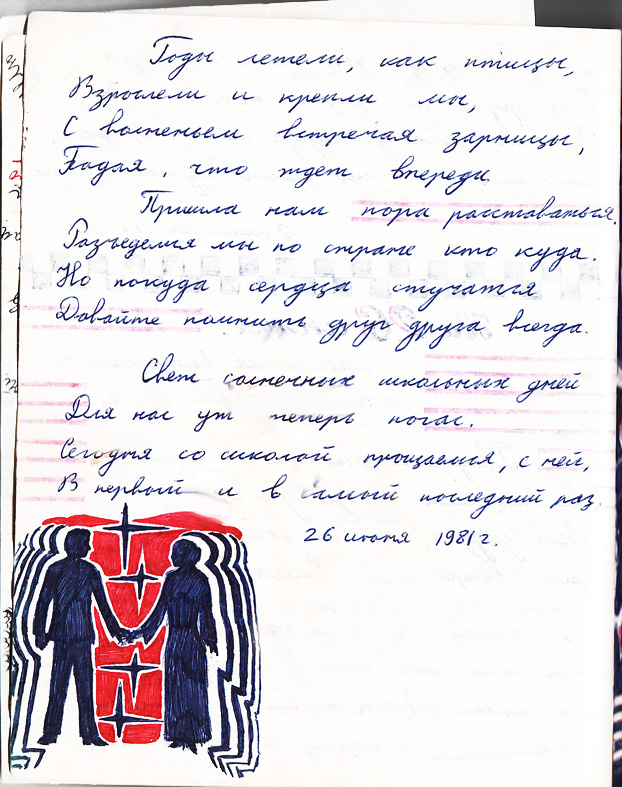 Годы летели, как птицы,
Взрослели и крепли мы,
С волненьем встречая зарницы,
Гадая, что ждет впереди.
Пришла нам пора расставаться.
Разъедемся мы по стране кто куда.
Но покуда сердца стучатся
Давайте помнить друг друга всегда.
Свет солнечных школьных дней
Для нас уж теперь погас.
Сегодня со школой прощаемся, с ней,
В первый и в самый последний раз.
26 июня 1981 г.